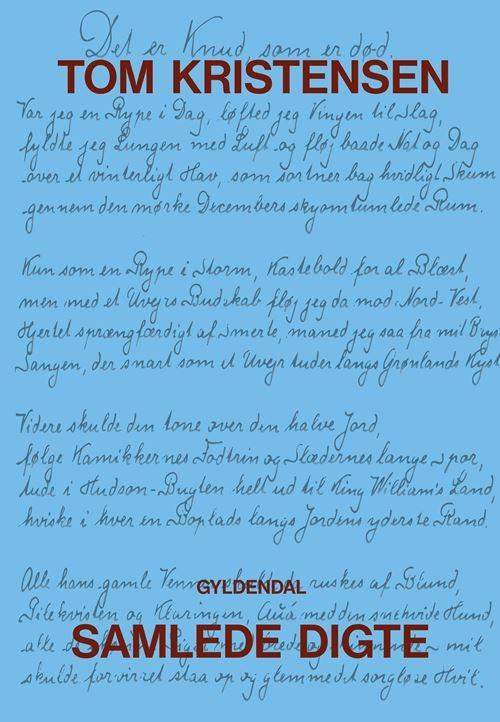 Det er Knud, som er død.
TOM KRISTENSEN
Var jeg en Rype i Dag, løfted jeg Vingen til Slag,
fyldte jeg Lungen med Luft og fløj baade Nat og Dag
over et vinterligt Hav, som sortner bag hvidligt Skum
gennem den mørke Decembers skyomtumlede Rum.
Kun som en Rype i Storm, Kastebold for al Blæst,
men med et Uvejrs Budskab fløj jeg da mod Nord-Vest,
Hjertet sprængfærdigt af Smerte, maned jeg saa fra mit Brys
Sangen, der snart som et Uvejr tuder langs Grønlands Kyst
Videre skulde den tone over den halve Jord,
følge Kamikkernes Fodtrin og Slædernes lange Spor,
tude i Hudson-Bugten helt ud til King William's Land
hviske i hver en Boplads langs Jordens yderste Rand.
Alle hans gamle Venner ruskes af Blund,
GYLDENDAL
og med den snehvide Hund,
SAMLEDE DIGTE
mit
skulde forvirret staa op og glemme det sorgløse Hvil.